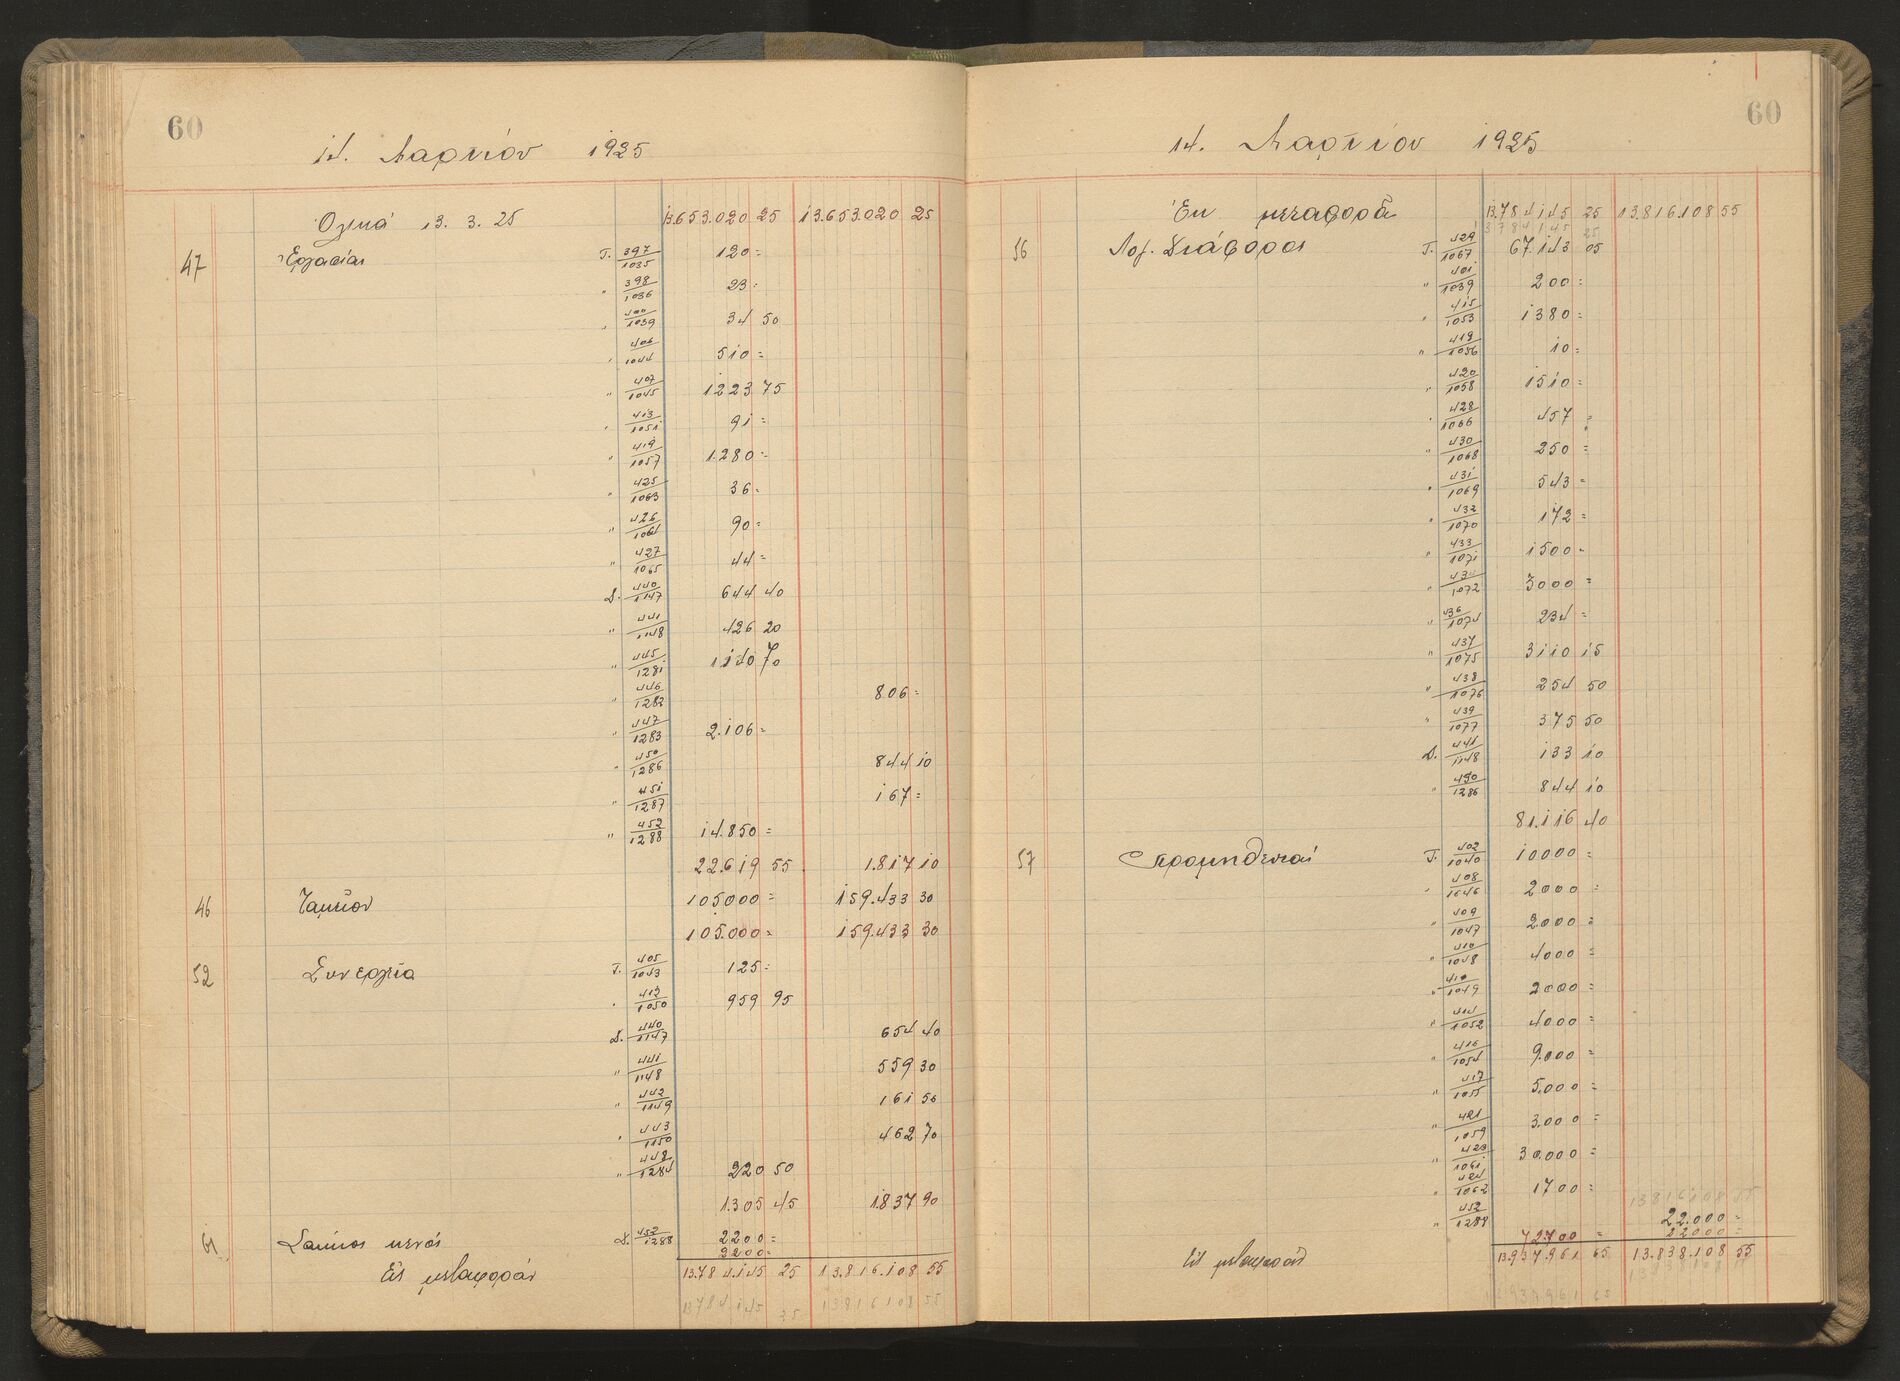 60
14. Μαρτίου 1925
Ολικά 13. 3. 25 13.653.020 25 13.653.020 25
47 Εργασίαι Τ. 397/1035 120 =
" 398/1036 23 =
" 400/1039 34 50
" 406/1044 510 =
" 407/1045 1223 75
" 413/1051 91 =
" 419/1057 1.280 =
" 425/1063 36 =
" 426/1064 90 =
" 427/1065 44 =
Δ. 440/1147 644 40
" 441/1148 426 20
" 445/1281 1140 70
" 446/1282 806 =
" 447/1283 2.106 =
" 450/1286 844 10
" 451/1287 167 =
" 452/1288 14.850 =
22.619 55 1.817 10
46 Ταμείον 105000 = 159.433 30
105.000 = 159.433 30
52 Συνεργεία Τ. 405/1043 125 =
" 413/1050 959 95
Δ. 440/1147 654 40
" 441/1148 559 30
" 442/1149 161 50
" 443/1150 462 70
" 448/1284 220 50
1.305 45 1.837 90
61 Σάκκοι κενοί Δ. 452/1288 2200 =
2200 =
Εις μεταφοράν 13.784.145 25 13.816.108 55
13.784.145 25 13816108 55
60
14. Μαρτίου 1925
Εκ μεταφοράς 13.784.145 25 13.816.108 55
3784145 25
56 Λογ. Διάφοροι Τ. 429/1067 67.143 05
" 401/1039 200 =
" 415/1053 1380 =
" 419/1056 10 =
" 420/1058 1510 =
" 428/1066 457 =
" 430/1068 250 =
" 431/1069 543 =
" 432/1070 172 =
" 433/1071 1500 =
" 434/1072 3000 =
" 436/1074 234 =
" 437/1075 3110 15
" 438/1076 254 50
" 439/1077 375 50
Δ. 441/1148 133 10
" 450/1286 844 10
81.116 40
57 Προμηθευταί Τ. 402/1040 10000 =
" 408/1046 2000 =
" 409/1047 2000 =
" 410/1048 4000 =
" 410/1049 2000 =
" 414/1052 4000 =
" 416/1054 9.000 =
" 417/1055 5.000 =
" 421/1059 3.000 =
" 423/1061 30.000 =
" 424/1062 1700 =
13816108 55
" 452/1288 22.000 =
72700 = 22000 =
Εις μεταφοράν 13.937.961 65 13.838.108 55
13937961 65 13838108 55